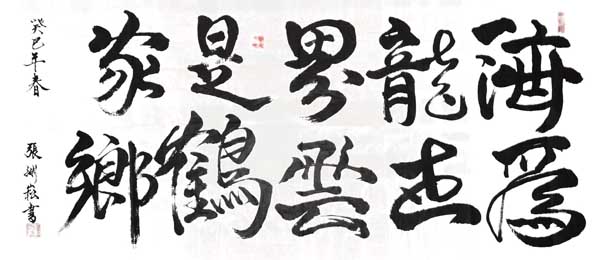 海為
龍世
界雲
是鶴
家鄉
癸巳年春 張書